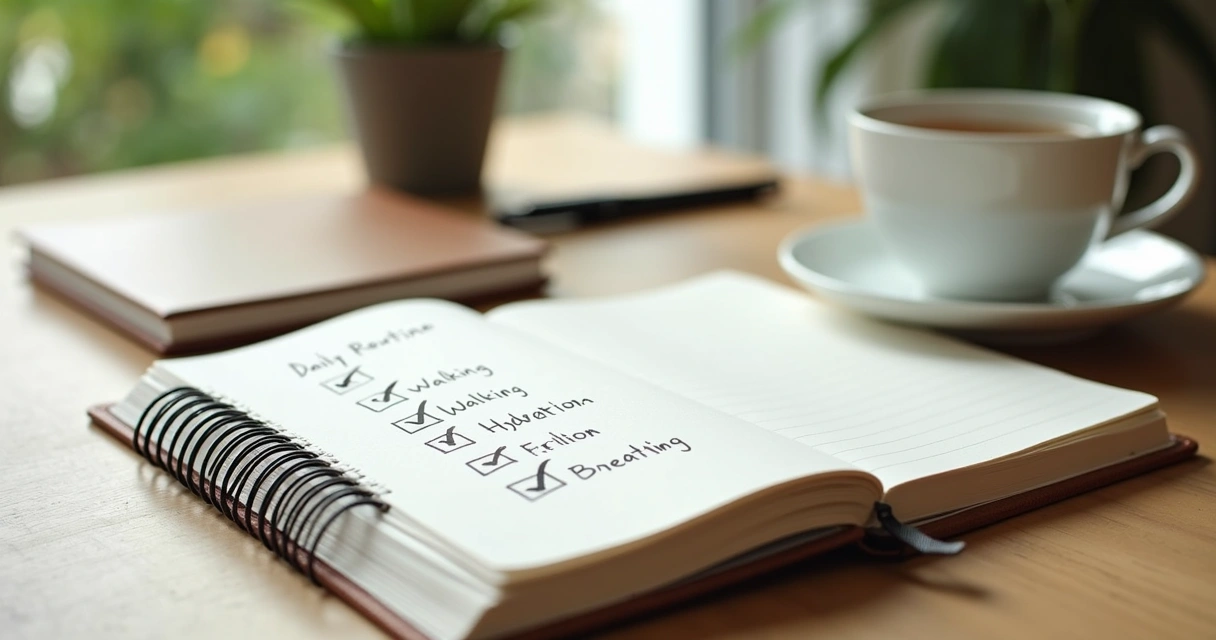 Daily Routine
Walking
Walking
Hydration
Frilion
Bneatiing